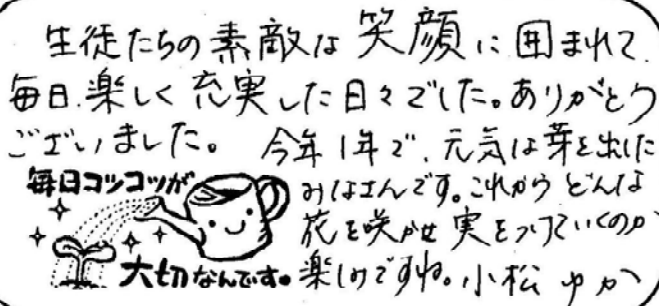 生徒たちの素敵な笑顔に囲まれて
毎日、楽しく充実した日々でした。ありがとう
ございました。 今年1年で、元気な芽を出した
みなさんです。これからどんな
花を咲かせ実をつけていくのか
楽しみですね。小松ゆか
毎日コツコツが
大切なんです。